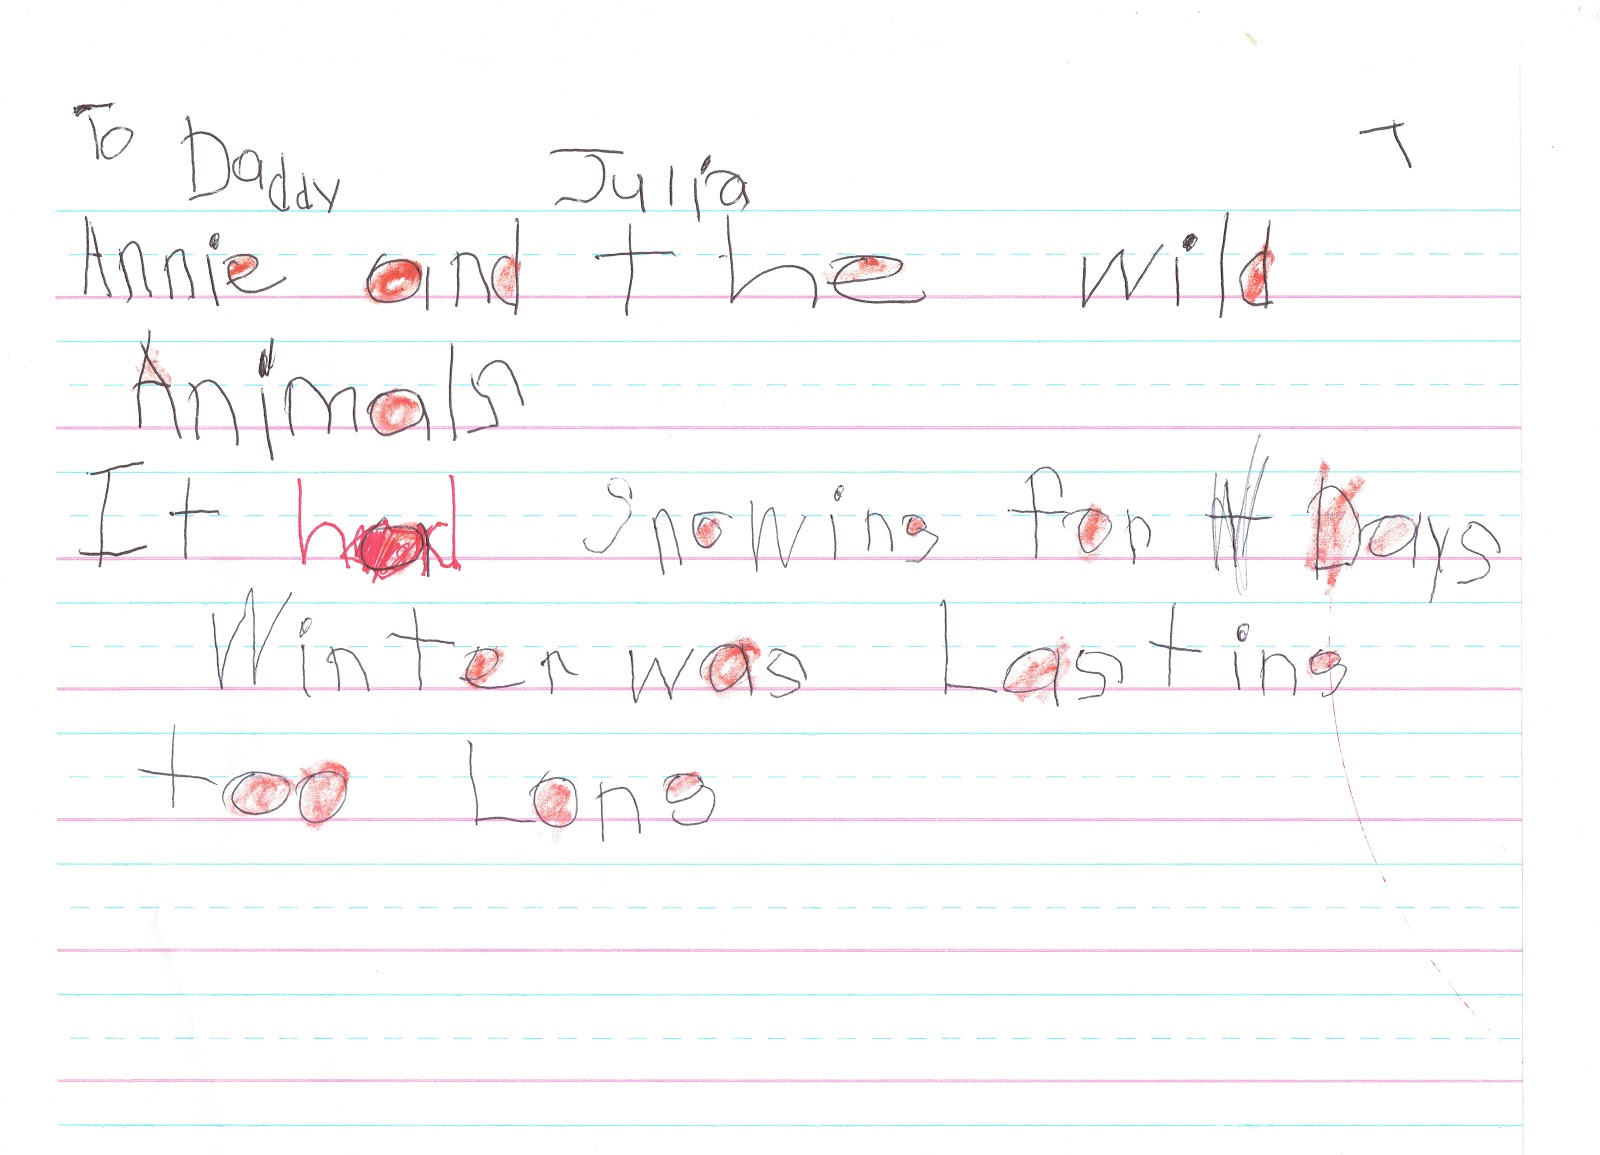 To Daddy Julia
Annie and the wild
Animals
It had Snowing for Days
Winter was Lasting
too Long